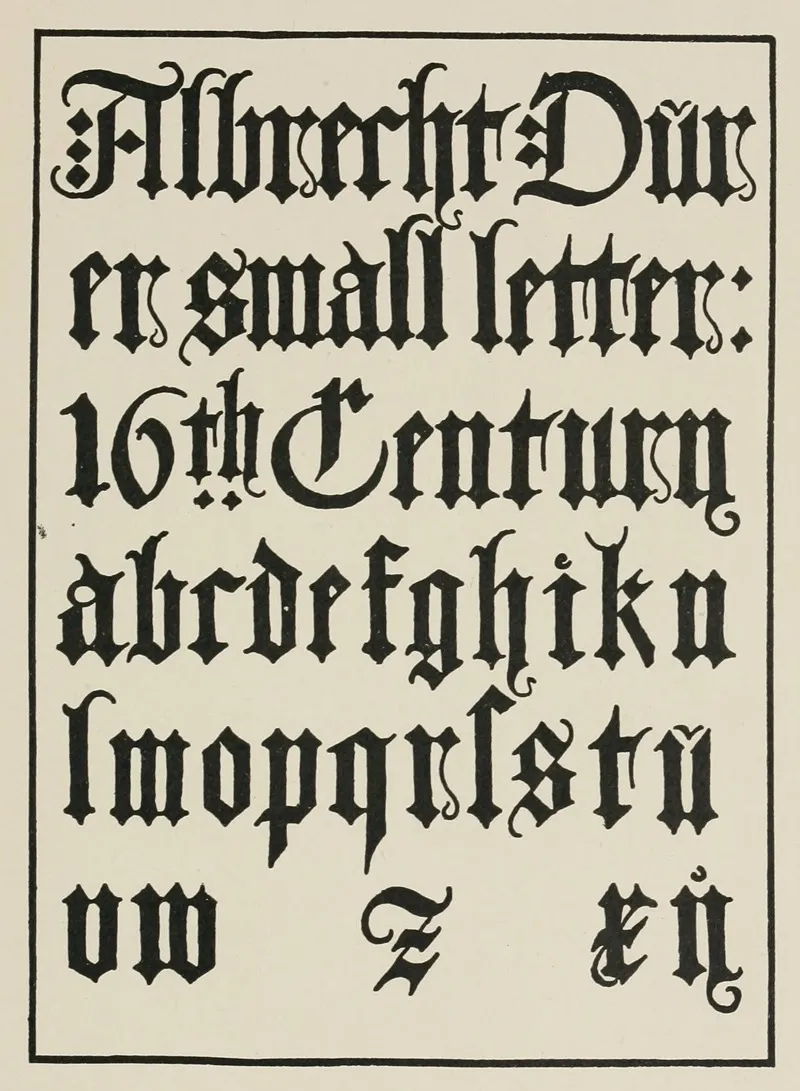 Albrecht Dür
er small letter:
16th Century
abcdefghikn
lmopqrſstŭ
vw z xẙ